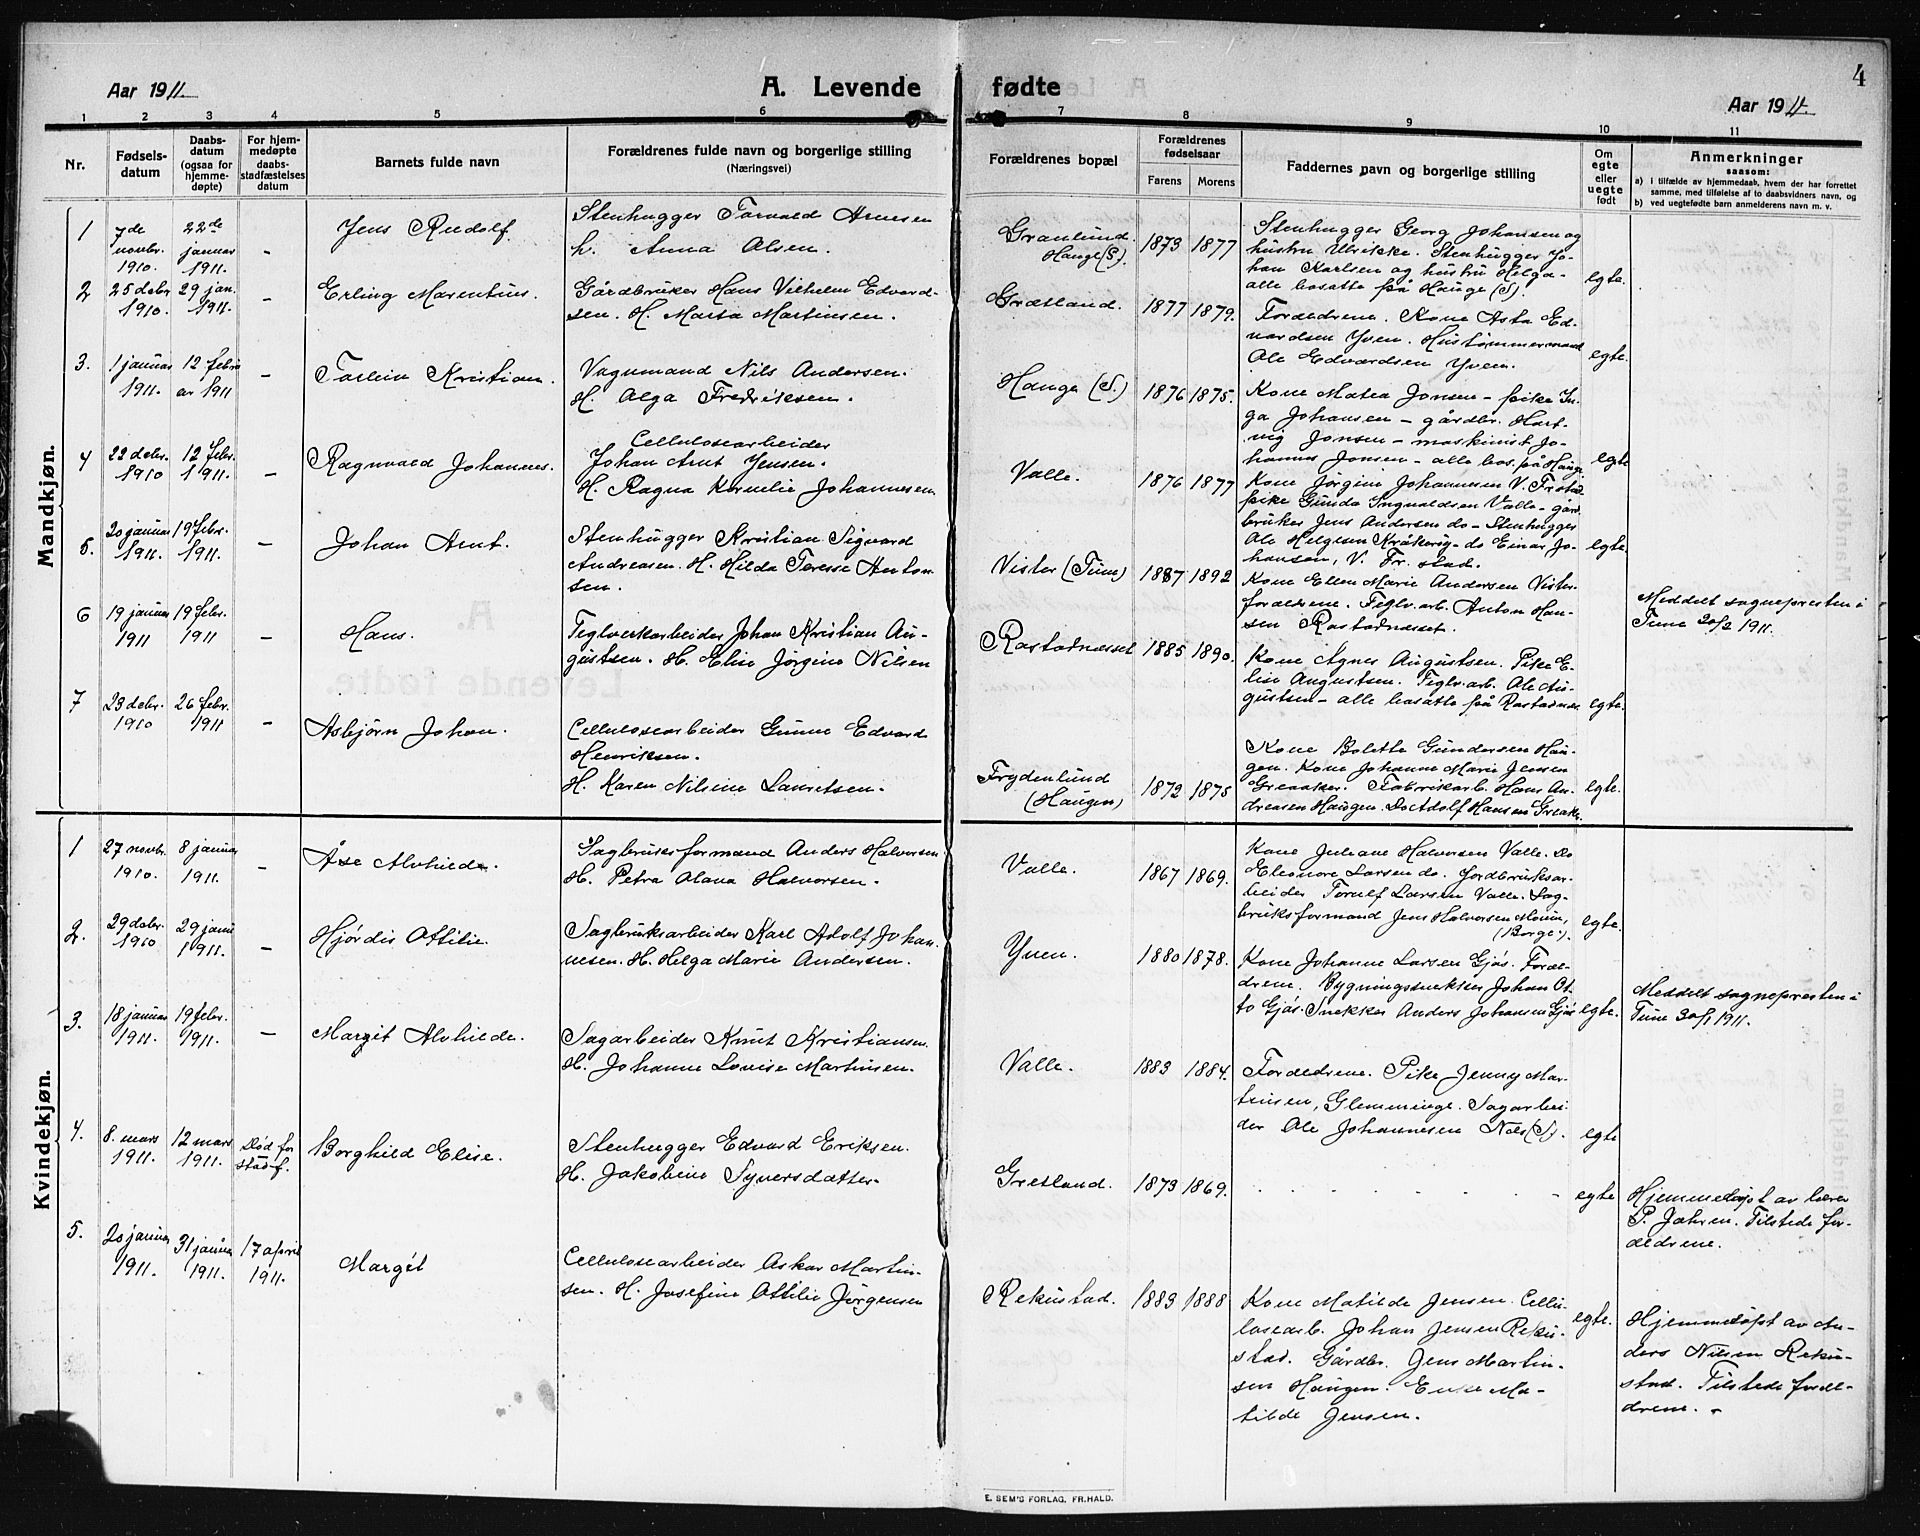 4
Aar 1911.
A. Levende fødte
Aar 1911.
1 2 3 4 5 6 7 8 9 10 11
Nr.
Fødsels-
datum
Daabs-
datum
(ogsaa for
hjemme-
døpte)
For hjem-
medøpte
daabs-
stadfæstelses
datum
Barnets fulde navn
Forældrenes fulde navn og borgerlige stilling
(Næringsvei)
Forældrenes bopæl
Forældrenes
fødselsaar
Farens Morens
Faddernes navn og borgerlige stilling
Om
egte
eller
uegte
født
Anmerkninger
saasom:
a) i tilfælde av hjemmedaab, hvem der har forrettet
samme, med tilføielse af to daabsvidners navn, og
b) ved uegtefødte barn anmelderens navn m. v.
Mandkjøn.
1
7de
novbr.
1910.
22de
januar
1911.
-
Jens Rudolf.
Stenhugger Torvald Arnesen
h. Anna Olsen.
Granlund.
Hauge (S).
1873 1877
Stenhugger Georg Johansen og
hustru Ulrikke. Stenhugger Jo-
han Karlsen og hustru Helga-
alle bosatte på Hauge (S).
egte.
2
25 debr
1910.
29 jan.
1911.
-
Erling Marentius.
Gårdbruker Hans Vilhelm Edvard-
sen. H. Marta Martinsen.
Grætland.
1877 1879.
Forældrene. Kone Asta Ed-
vardsen Yven. Hustømmermand
Ole Edvardsen Yven.
egte.
3.
1 januar
1911.
12 febru
ar 1911
-
Torleiv Kristian.
Vognmand Nils Andersen.
H. Olga Fredriksen.
Hauge (S.)
1876 1875.
Kone Matea Jonsen - pike In-
ga Johansen - gårdbr. Hart-
vig Jonsen - maskinist Jo-
hannes Jonsen - alle bos. på Hauge
egte
4
22 debr.
1910
12 febr.
1911.
-
Ragnvald Johannes.
Cellulosearbeider
Johan Arnt Jensen.
H. Ragna Kornelie Johannesen.
Valle.
1876 1877
Kone Jørgine Johannesen V. Frstad
pike Gunda Ingvaldsen Valle - gård
bruker Jens Andersen do - Stenhugger
Ole Helgesen Kråkerøy - do Einar Jo-
hansen, V. Fr.stad.
egte.
5.
20 januar
1911.
19 febr.
1911.
-
Johan Arnt.
Stenhugger Kristian Sigvard
Andreasen. H. Hilda Terese Anton
sen.
Vister (Tune)
1887 1892
Kone Ellen Marie Andersen Vister
forældrene. Teglv.arb. Anton Han-
sen Rostadnesset.
Meddelt sognepresten i
Tune 20/2 1911.
6
19 januar
1911
19 febr.
1911
-
Hans.
Teglverkarbeider Johan Kristian Au-
gustsen. H. Elise Jørgine Nilsen
Rostadnesset
1885 1890.
Kone Agnes Augustsen. Pike E-
lise Augustsen. Teglv.arb. Ole Au-
gustsen - alle bosatte på Rostadnes
egte.
7
23 debr.
1910
26 febr.
1911
-
Asbjørn Johan.
Cellulosearbeider Gunne Edvard
Henriksen.
H. Karen Nilsine Lauritsen.
Frydenlund
(Haugen)
1872 1875
Kone Bolette Gundersen Hau-
gen. Kone Johanne Marie Jensen
Greaaker. Fabrikarb. Hans An-
dreasen Haugen. Do Adolf Hansen Greake.
egte.
Kvindekjøn.
1
27 novbr.
1910.
8 januar
1911.
-
Åse Alvhilde.
Sagbruksformand Anders Halvorsen.
H. Petra Olava Halvorsen.
Valle.
1867 1869.
Kone Juliane Halvorsen Valle. Do
Eleonore Larsen do. Jordbruksar-
beider Torulf Larsen Valle. Sag-
bruksformand Jens Halvorsen Moum,
(Borge).
egte.
2.
29 debr.
1910
29 janu
1911.
-
Hjørdis Ottilie.
Sagbruksarbeider Karl Adolf Johan
nesen. H. Helga Marie Andersen.
Yven.
1880 1878.
Kone Johanne Larsen Gjøs. Foræl-
drene. Bygningssnekker Johan Ot-
to Gjøs. Snekker Anders Johansen Gjøs
egte.
Meddelt sognepresten i
Tune 30/1 1911.
3.
18 januar
1911.
19 febr.
1911.
-
Margit Alvhilde.
Sagarbeider Knut Kristiansen.
H. Johanne Lovise Martinsen.
Valle.
1883 1884.
Forældrene. Pike Jenny Mar-
tinsen, Glemminge. Sagarbei
der Ole Johannesen Nøis (S).
egte
4.
8. mars
1911.
12 mars
1911.
Død før
stadf.
Borghild Elise.
Stenhugger Edvard Eriksen.
H. Jakobine Syversdatter.
Gretland.
1873 1869.
-
egte
Hjemmedøpt av lærer
P. Jahren. Tilstede for-
ældrene.
5.
20 januar
1911.
31 januar
1911.
17 april
1911.
Margit
Cellulosearbeider Oskar Martin-
sen. H. Josefine Ottilie Jørgensen
Rekustad.
1883 1888
Kone Matilde Jensen. Cellu-
losearb. Johan Jensen Reku-
stad. Gårdbr. Jens Martin-
sen Haugen. Enke Ma-
tilde Jensen.
egte.
Hjemmedøpt av An-
ders Nilsen Reku-
stad. Tilstede foræl-
drene.
E. SEM'S FORLAG, FR.HALD.